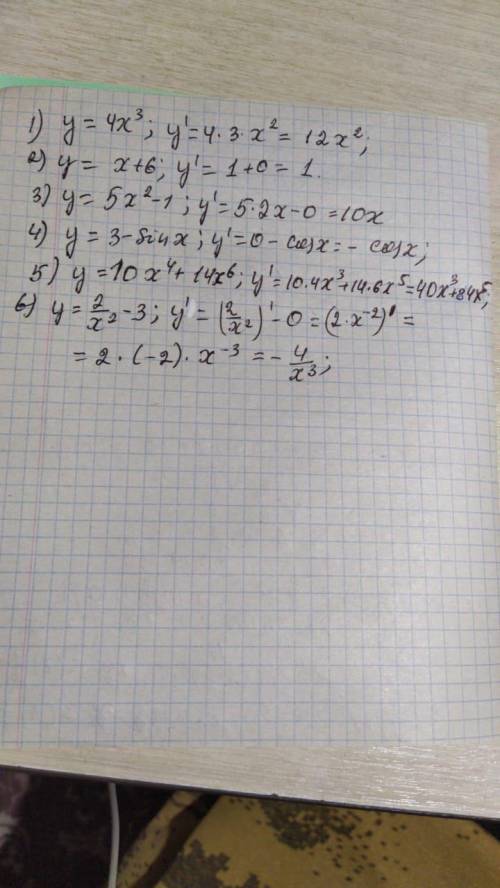 1) y = 4x³; y' = 4·3·x² = 12x²;
2) y = x+6; y' = 1+0 = 1.
3) y = 5x²-1; y' = 5·2x-0 = 10x
4) y = 3-sin x; y' = 0 - cos x = - cos x;
5) y = 10x⁴ + 14x⁶; y' = 10·4x³+14·6x⁵ = 40x³+84x⁵;
6) y = 2/x² - 3; y' = (2/x²)' - 0 = (2·x⁻²)' =
= 2·(-2)·x⁻³ = - 4/x³;